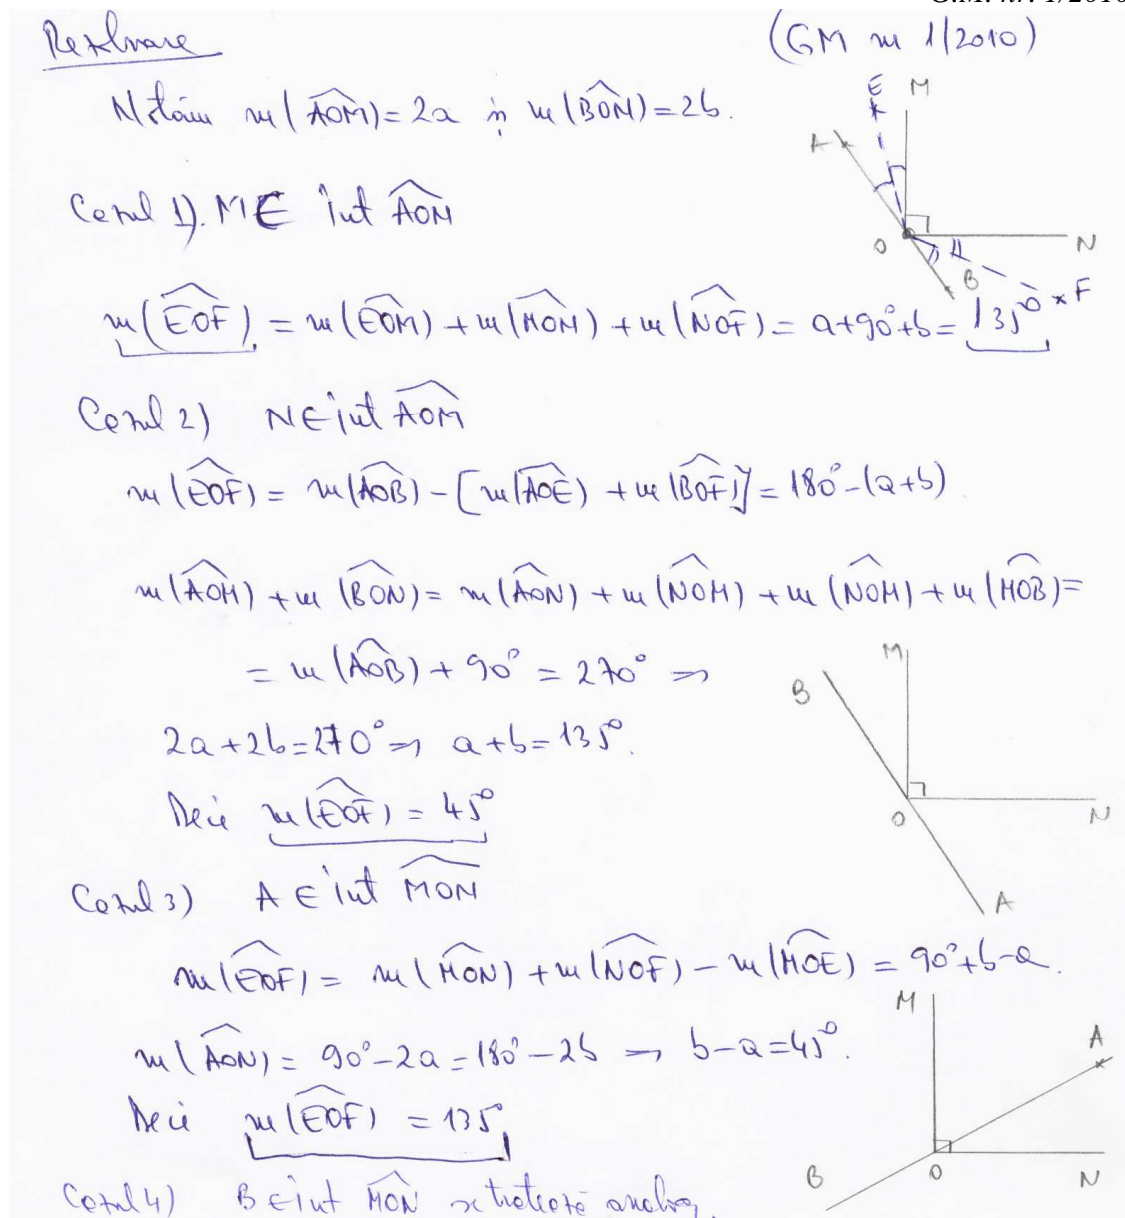 G.M. nr. 1/2010
Rezolvare
(GM nr 1/2010)
Notăm m(AOM)=2a și m(BON)=2b.
E M
A
O N
B F
Cazul 1). M∈ int AON
m(EOF) = m(EOM) + m(MON) + m(NOF) = a+90°+b = 135°
Cazul 2) N∈int AOM
m(EOF) = m(AOB) - [m(AOE) + m(BOF)] = 180°-(a+b)
m(AOM) + m(BON) = m(AON) + m(NOM) + m(NOM) + m(MOB) =
= m(AOB) + 90° = 270° ⇒
2a+2b=270° ⇒ a+b=135°.
Deci m(EOF) = 45°
M
B
O N
A
Cazul 3) A ∈ int MON
m(EOF) = m(MON) + m(NOF) - m(MOE) = 90°+b-a.
m(AON) = 90°-2a = 180°-2b ⇒ b-a=45°.
Deci m(EOF) = 135°
M
A
B O N
Cazul 4) B∈int MON se tratează analog.